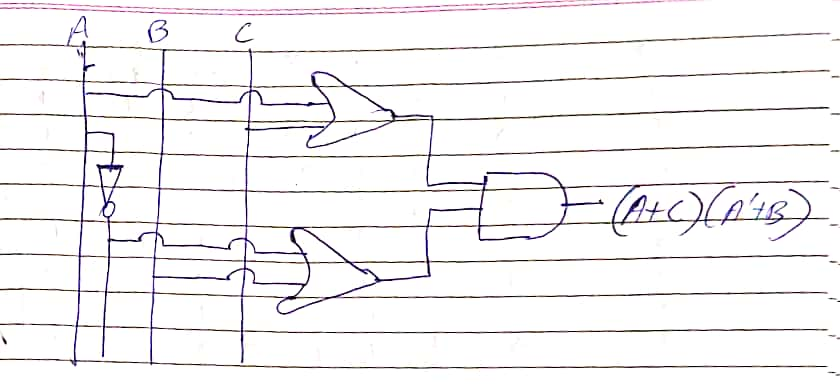 A B C
(A+C)(A'+B)